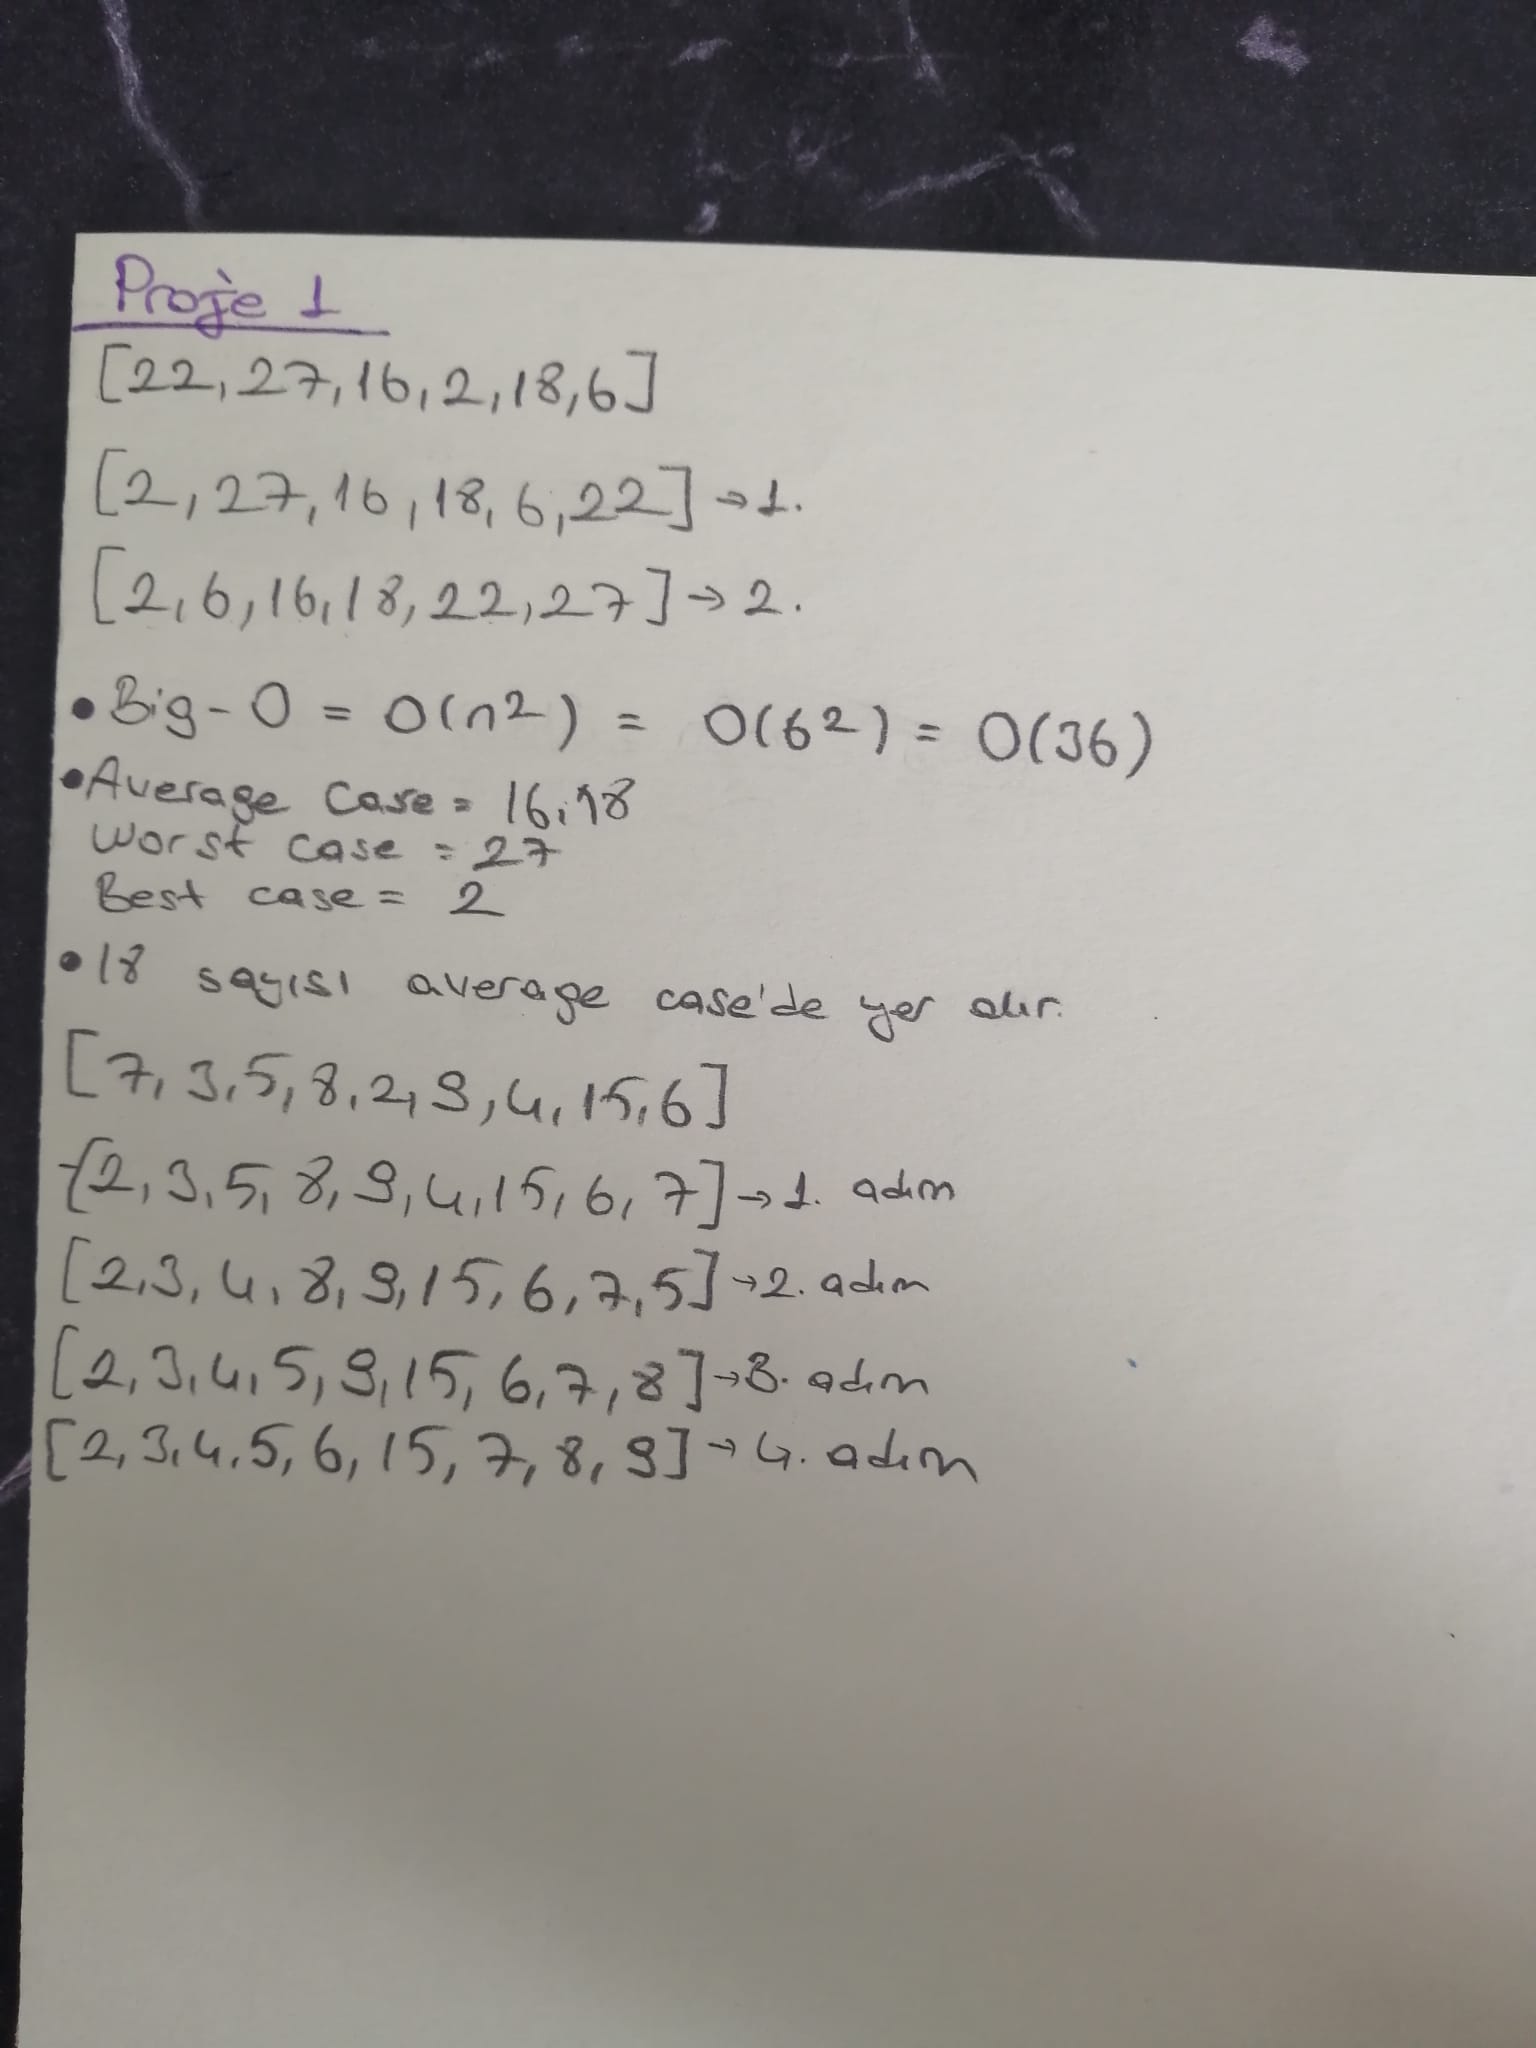 Proje 1
[22, 27, 16, 2, 18, 6]
[2, 27, 16, 18, 6, 22] → 1.
[2, 6, 16, 18, 22, 27] → 2.
• Big-O = O(n2) = O(62) = O(36)
• Average Case = 16, 18
Worst case = 27
Best case = 2
• 18 sayısı average case'de yer alır.
[7, 3, 5, 8, 2, 9, 4, 15, 6]
[2, 3, 5, 8, 9, 4, 15, 6, 7] → 1. adım
[2, 3, 4, 8, 9, 15, 6, 7, 5] → 2. adım
[2, 3, 4, 5, 9, 15, 6, 7, 8] → 3. adım
[2, 3, 4, 5, 6, 15, 7, 8, 9] → 4. adım